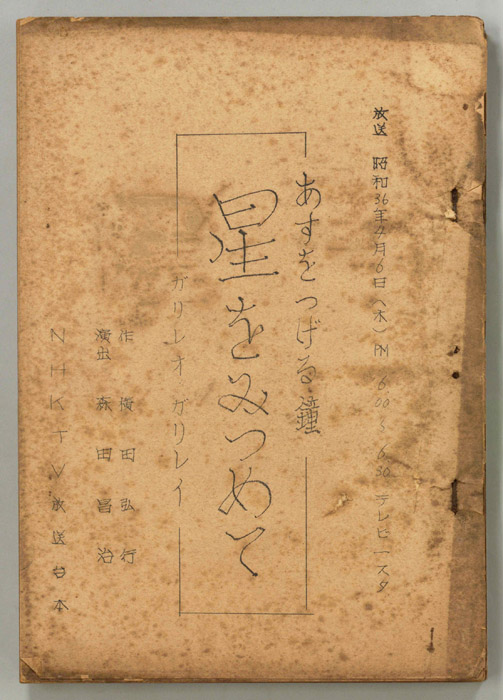 放送 昭和36年4月6日(木)PM 6.00~6.30 テレビ一スタ
あすをつげる鐘
星をみつめて
ガリレオ ガリレイ
作 横田弘行
演出 森田昌治
NHKTV放送台本